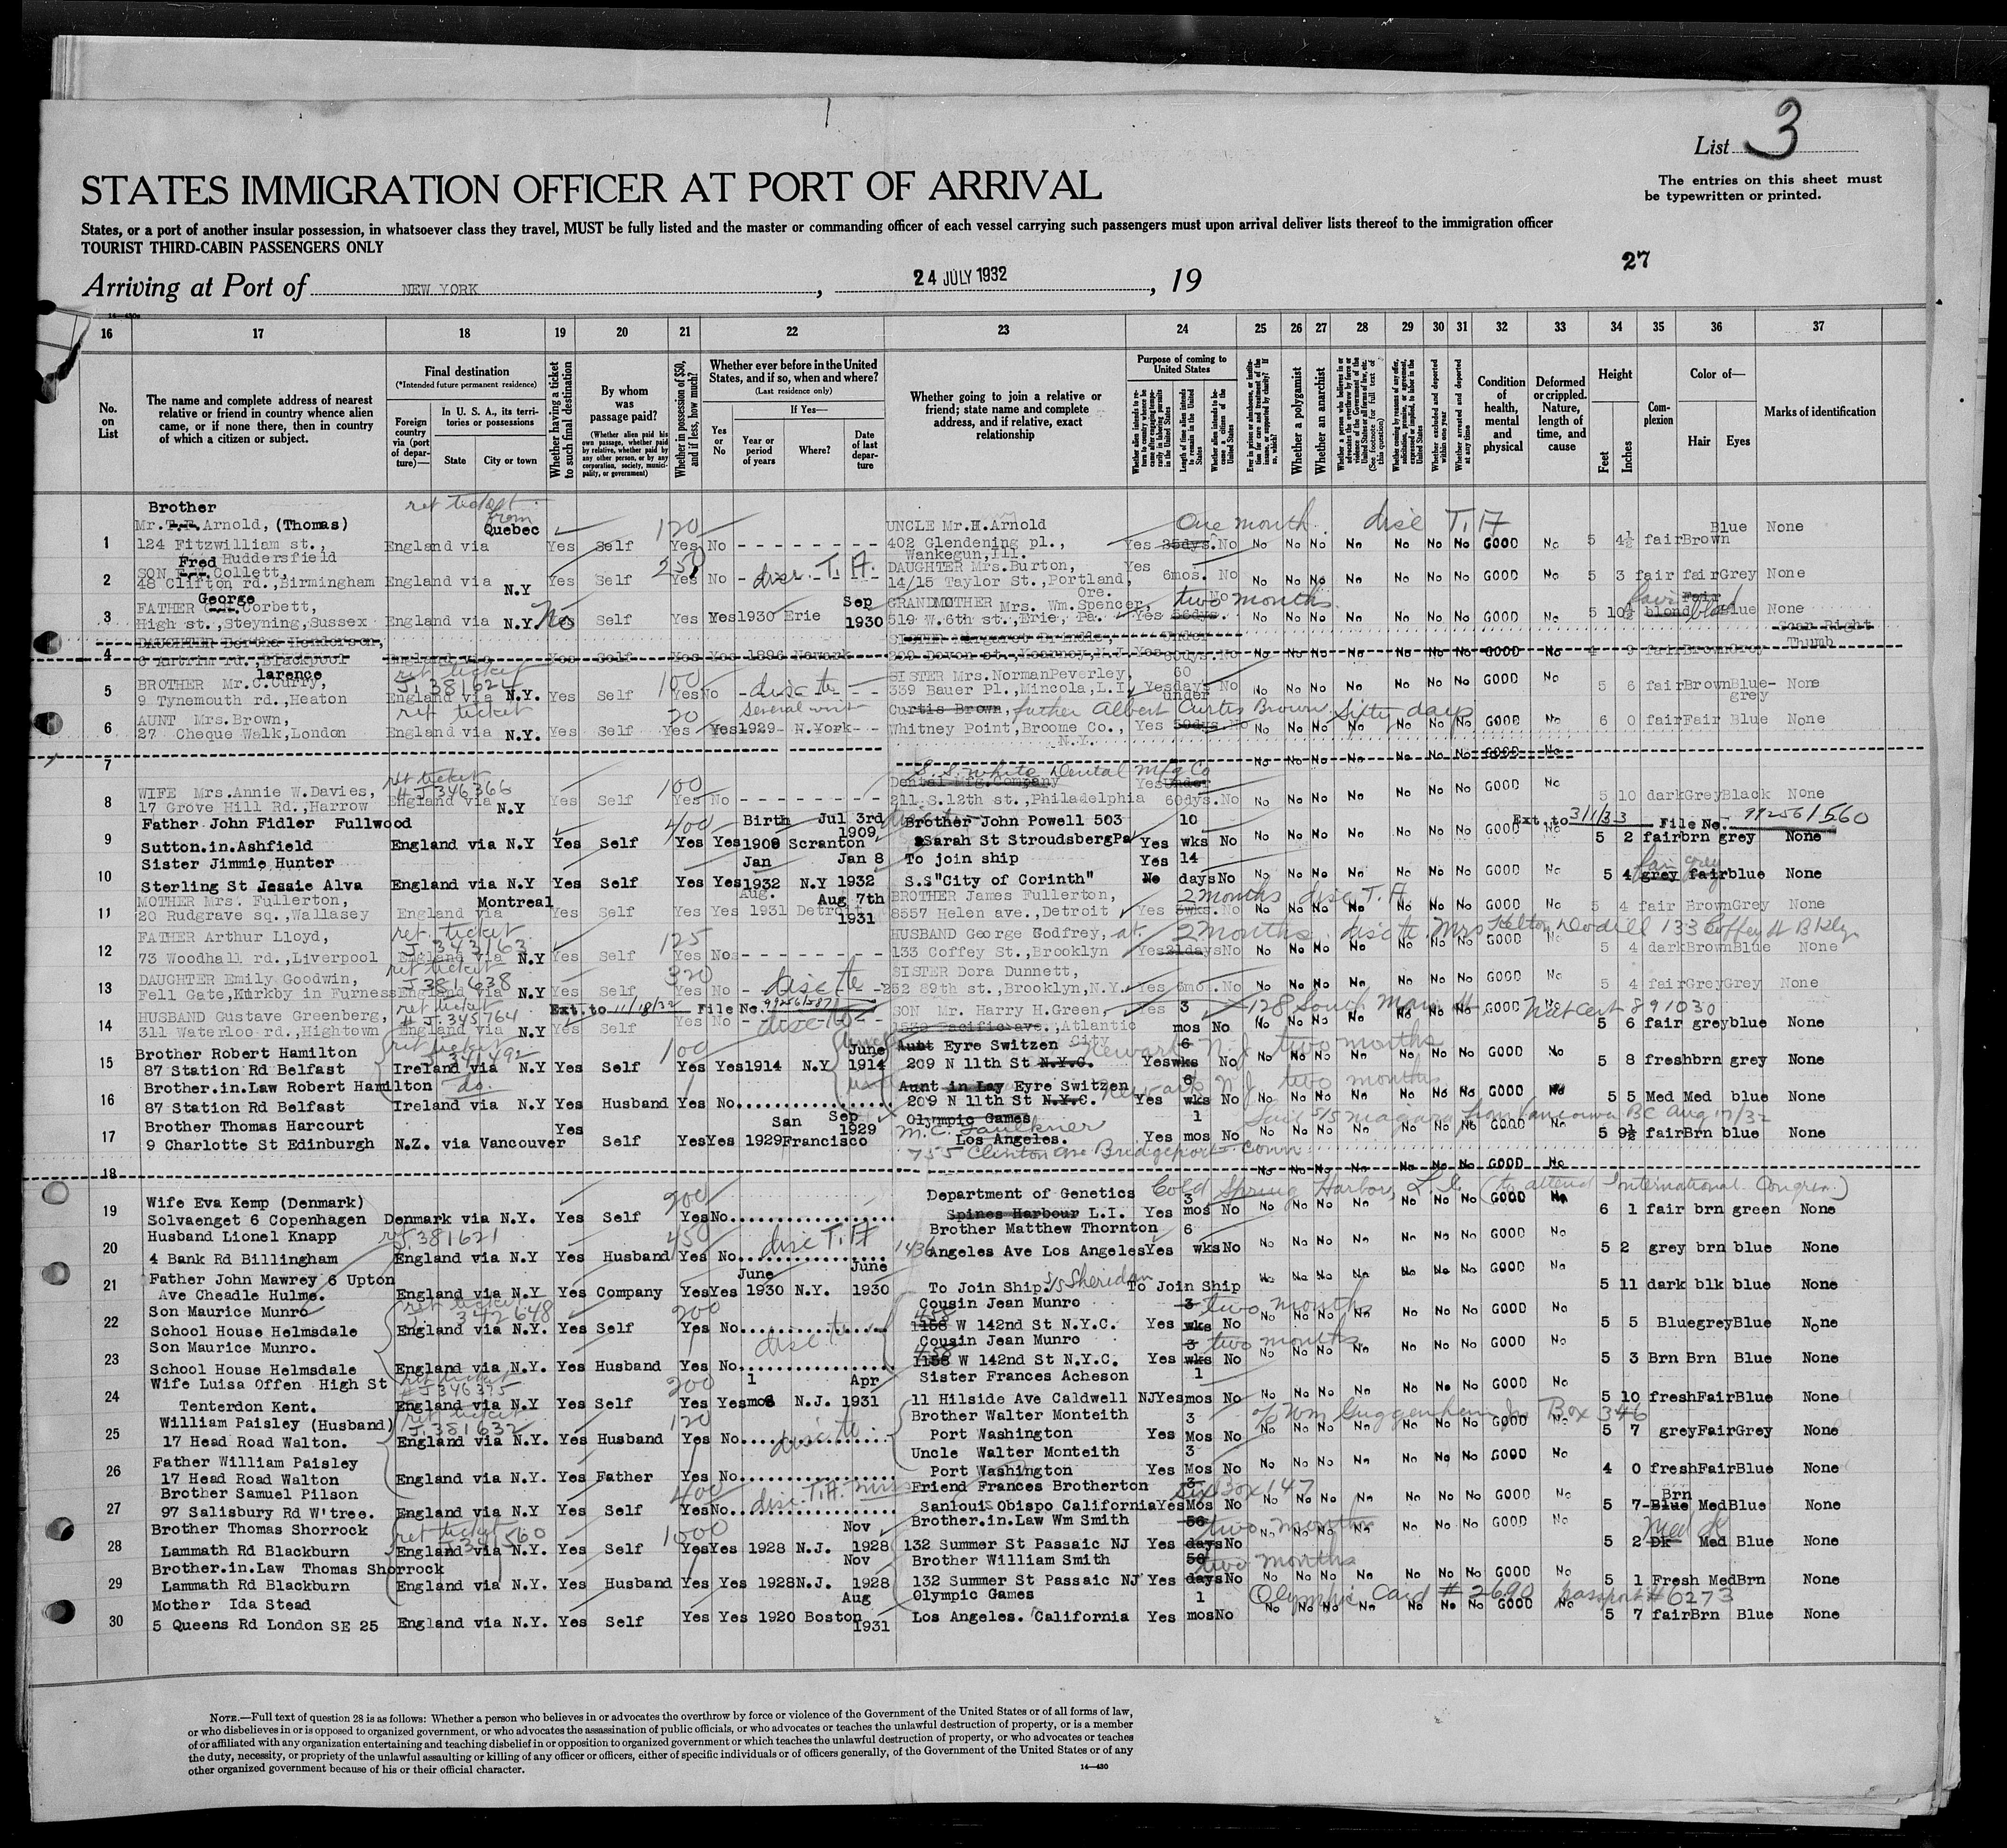 List 3
The entries on this sheet must
be typewritten or printed.
STATES IMMIGRATION OFFICER AT PORT OF ARRIVAL
States, or a port of another insular possession, in whatsoever class they travel, MUST be fully listed and the master or commanding officer of each vessel carrying such passengers must upon arrival deliver lists thereof to the immigration officer
TOURIST THIRD-CABIN PASSENGERS ONLY
27
Arriving at Port of NEW YORK, 24 JULY 1932, 19
14—430a
16 17 18 19 20 21 22 23 24 25 26 27 28 29 30 31 32 33 34 35 36 37
No. on List
The name and complete address of nearest relative or friend in country whence alien came, or if none there, then in country of which a citizen or subject.
Final destination
(*Intended future permanent residence)
Foreign country via (port of departure)—
In U. S. A., its territories or possessions
State City or town
Whether having a ticket to such final destination
By whom was passage paid?
(Whether alien paid his own passage, whether paid by relative, whether paid by any other person, or by any corporation, society, municipality, or government)
Whether in possession of $50, and if less, how much?
Whether ever before in the United States, and if so, when and where?
(Last residence only)
Yes or No
If Yes—
Year or period of years
Where?
Date of last departure
Whether going to join a relative or friend; state name and complete address, and if relative, exact relationship
Purpose of coming to United States
Whether alien intends to return to country whence he came after engaging temporarily in laboring pursuits in the United States
Length of time alien intends to remain in the United States
Whether alien intends to become a citizen of the United States
Whether a polygamist
Whether an anarchist
Whether excluded and deported within one year
Whether arrested and deported at any time
Condition of health, mental and physical
Deformed or crippled. Nature, length of time, and cause
Height
Feet Inches
Complexion
Color of—
Hair Eyes
Marks of identification
Brother ret ticket from
Mr. T.F. Arnold, (Thomas) Quebec 120 UNCLE Mr.H.Arnold One month disc T.A Blue None
1 124 Fitzwilliam st., England via Yes Self Yes No 402 Glendening pl., Yes 25dys. No No No No No No No No GOOD No 5 4½ fair Brown
Huddersfield Wankegun,Ill.
Fred
SON F.W. Collett, 250 disc. T.A. DAUGHTER Mrs.Burton, Yes
2 48 Clifton rd.,Birmingham England via N.Y Yes Self Yes No 14/15 Taylor St.,Portland, 6mos. No No No No No No No No GOOD No 5 3 fair fair Grey None
George Ore.
FATHER Corbett, No Sep GRANDMOTHER Mrs. Wm.Spencer, two months fair
3 High st.,Steyning,Sussex England via N.Y. Self Yes Yes 1930 Erie 1930 519 W.6th st.,Erie, Pa. Yes 56dys. No No No No No No No No GOOD No 5 10½ blond Blue None
DAUGHTER Bertha Henderson, SISTER Margaret Brindle, Under Scar Right Thumb
4 6 Antrim rd.,Blackpool England via Yes Self Yes Yes 1896 Newark 209 Devon st.,Kearney,N.J. Yes 60dys. No No No No No No No No GOOD No 4 9 fair Brown Grey
larence ret ticket
BROTHER Mr.C.Curry, J.381624 100 disc te SISTER Mrs.NormanPeverley, 60
5 9 Tynemouth rd.,Heaton England via N.Y. Yes Self Yes No 339 Bauer Pl.,Mincola,L.I. Yes days No No No No No No No No GOOD No 5 6 fair Brown Blue-grey None
under
AUNT Mrs.Brown, ret ticket 20 Several visit Curtis Brown, father Albert Curtis Brown Sixty days
6 27 Cheque Walk,London England via N.Y. Yes Self Yes Yes 1929 N.York Whitney Point,Broome Co., Yes 50dys. No No No No No No No No GOOD No 6 0 fair Fair Blue None
N.Y.
7 No No No No No No No GOOD No
ret ticket S.S. White Dental Mfg Co
WIFE Mrs.Annie W.Davies, # J346366 100 Dental Mfg.Company Yes Under
8 17 Grove Hill Rd.,Harrow England via N.Y Yes Self Yes No 211 S.12th st.,Philadelphia 60dys. No No No No No No No No GOOD No 5 10 dark Grey Black None
Father John Fidler Fullwood 400 Birth Jul 3rd 1909 Brother John Powell 503 10 Ext. to 3/1/33 File No. 99256/560
9 Sutton.in.Ashfield England via N.Y Yes Self Yes Yes 1909 Scranton Sarah St StroudsbergPa Yes wks No No No No No No No No GOOD No 5 2 fair brn grey None
Sister Jimmie Hunter Jan Jan 8 To join ship Yes 14 fair grey
10 Sterling St Jessie Alva England via N.Y Yes Self Yes Yes 1932 N.Y 1932 S.S"City of Corinth" No days No No No No No No No No GOOD No 5 4 grey fair blue None
MOTHER Mrs. Fullerton, Montreal Aug. Aug 7th BROTHER James Fullerton, 2 months disc T.A
11 20 Rudgrave sq.,Wallasey England via Yes Self Yes Yes 1931 Detroit 1931 8557 Helen ave.,Detroit Yes 3wks. No No No No No No No No GOOD No 5 4 fair Brown Grey None
FATHER Arthur Lloyd, ret. ticket J.343163 125 HUSBAND George Godfrey, at. 2 months. disc te. Mrs Helton Dodill 133 Coffey St Bklyn
12 73 Woodhall rd.,Liverpool England via N.Y Yes Self Yes No 133 Coffey St.,Brooklyn Yes 21days No No No No No No No No GOOD No 5 4 dark Brown Blue None
DAUGHTER Emily Goodwin, ret ticket J381638 320 disc te SISTER Dora Dunnett,
13 Fell Gate,Kirkby in Furness England via N.Y Yes Self Yes No 252 89th st.,Brooklyn,N.Y. Yes 6mo. No No No No No No No No GOOD No 5 4 fair Grey Grey None
ret ticket Ext. to 11/18/32 File No. 99256/587
HUSBAND Gustave Greenberg, # J.345764 disc te SON Mr. Harry H.Green, Yes 3 128 South Main St. Nat Cert 891030
14 311 Waterloo rd.,Hightown England via N.Y Yes Self Yes No 1530 Pacific ave.,Atlantic City mos No No No No No No No No GOOD No 5 6 fair grey blue None
Brother Robert Hamilton ret ticket 341492 100 June Aunt Eyre Switzen 6 Newark N.J. two months
15 87 Station Rd Belfast Ireland via N.Y Yes Self Yes Yes 1914 N.Y 1914 209 N 11th St N.Y.C. Yes wks No No No No No No No No GOOD No 5 8 fresh brn grey None
Brother.in.Law Robert Hamilton do. Aunt in Lay Eyre Switzen 6 Newark N.J. two months
16 87 Station Rd Belfast Ireland via N.Y Yes Husband Yes No 209 N 11th St N.Y.C. Yes wks No No No No No No No No GOOD No 5 5 Med Med blue None
Brother Thomas Harcourt Yes San Sep 1929 Olympic Games 1 Sail S/S Niagara from Vancouver BC Aug 17/32
17 9 Charlotte St Edinburgh N.Z. via Vancouver Self Yes Yes 1929 Francisco M.C. Faulkner Los Angeles. Yes mos No No No No No No No No GOOD No 5 9½ fair Brn blue None
755 Clinton Ave Bridgeport Conn
18 No No No No No No No GOOD No
Wife Eva Kemp (Denmark) 200 Department of Genetics Cold Spring Harbor, L.I. (to attend International Congress.)
19 Solvaenget 6 Copenhagen Denmark via N.Y. Yes Self Yes No Spines Harbour L.I. Yes 3 mos No No No No No No No No GOOD No 6 1 fair brn green None
Husband Lionel Knapp J.381621 450 disc T.A Brother Matthew Thornton 6
20 4 Bank Rd Billingham England via N.Y Yes Husband Yes No 1436 Angeles Ave Los Angeles Yes wks No No No No No No No No GOOD No 5 2 grey brn blue None
Father John Mawrey 6 Upton June June
21 Ave Cheadle Hulme. England via N.Y Yes Company Yes Yes 1930 N.Y. 1930 To Join Ship. S/S Sheridan To Join Ship No No No No No No No GOOD No 5 11 dark blk blue None
Son Maurice Munro ret ticket 342648 200 Cousin Jean Munro 3 two months
22 School House Helmsdale England via N.Y. Yes Self Yes No 458 1158 W 142nd St N.Y.C. Yes wks No No No No No No No No GOOD No 5 5 Blue grey Blue None
Son Maurice Munro. disc te Cousin Jean Munro 3 two months
23 School House Helmsdale England via N.Y. Yes Husband Yes No 458 1158 W 142nd St N.Y.C. Yes wks No No No No No No No No GOOD No 5 3 Brn Brn Blue None
Wife Luisa Offen High St ret ticket # J346375 200 1 Apr Sister Frances Acheson 1
24 Tenterdon Kent. England via N.Y Yes Self Yes Yes mos N.J. 1931 11 Hilside Ave Caldwell NJ Yes mos No No No No No No No No GOOD No 5 10 fresh Fair Blue None
William Paisley (Husband) ret ticket J.381632 120 disc te Brother Walter Monteith 3 c/o Wm Guggenheim Jr Box 346
25 17 Head Road Walton. England via N.Y. Yes Husband Yes No Port Washington Yes Mos No No No No No No No No GOOD No 5 7 grey Fair Grey None
Father William Paisley Uncle Walter Monteith 3
26 17 Head Road Walton England via N.Y. Yes Father Yes No Port Washington Yes Mos No No No No No No No No GOOD No 4 0 fresh Fair Blue None
Brother Samuel Pilson 400 disc. T.A. Friend Frances Brotherton 3 six Box 147 Brn
27 97 Salisbury Rd W'tree. England via N.Y Yes Self Yes No Sanlouis Obispo California Yes Mos No No No No No No No No GOOD No 5 7 Blue Med Blue None
Brother Thomas Shorrock ret ticket J341560 1000 Nov Brother.in.Law Wm Smith 56 two months Med
28 Lammath Rd Blackburn England via N.Y. Yes Self Yes Yes 1928 N.J. 1928 132 Summer St Passaic NJ Yes days No No No No No No No No GOOD No 5 2 Dk Med Blue None
Brother.in.Law Thomas Shorrock Nov Brother William Smith 56 two months
29 Lammath Rd Blackburn England via N.Y. Yes Husband Yes Yes 1928 N.J. 1928 132 Summer St Passaic NJ Yes days No No No No No No No No GOOD No 5 1 Fresh Med Brn None
Mother Ida Stead Aug Olympic Games 1 Olympic Card # 2690 passport # 6273
30 5 Queens Rd London SE 25 England via N.Y. Yes Self Yes Yes 1920 Boston 1931 Los Angeles. California Yes mos No No No No No No No No GOOD No 5 7 fair Brn Blue None
NOTE.—Full text of question 28 is as follows: Whether a person who believes in or advocates the overthrow by force or violence of the Government of the United States or of all forms of law,
or who disbelieves in or is opposed to organized government, or who advocates the assassination of public officials, or who advocates or teaches the unlawful destruction of property, or is a member
of or affiliated with any organization entertaining and teaching disbelief in or opposition to organized government or which teaches the unlawful destruction of property, or who advocates or teaches
the duty, necessity, or propriety of the unlawful assaulting or killing of any officer or officers, either of specific individuals or of officers generally, of the Government of the United States or of any
other organized government because of his or their official character.
14—430